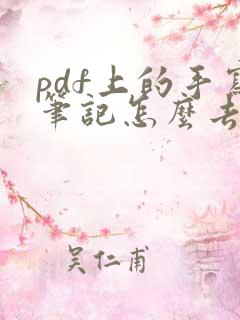 pdf上的手寫
筆記怎麼去
吳仁甫